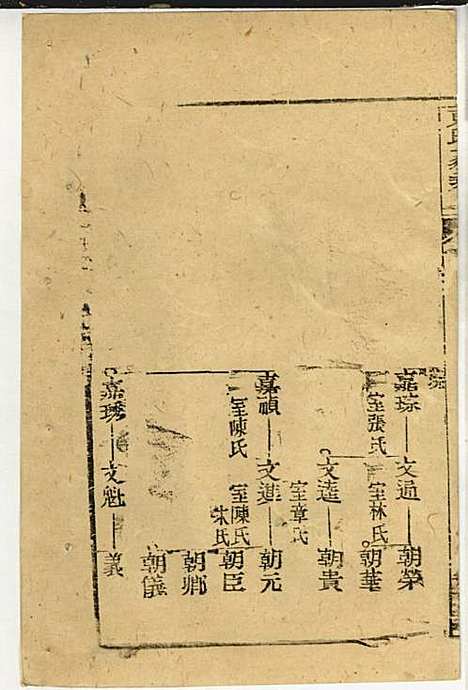 嘉琮
文過
朝榮
室張氏
室林氏
朝華
文達
朝貴
室章氏
嘉禎
文進
朝元
室陳氏
室陳氏
朱氏
朝臣
朝鄉
朝儀
嘉琇
文魁
義